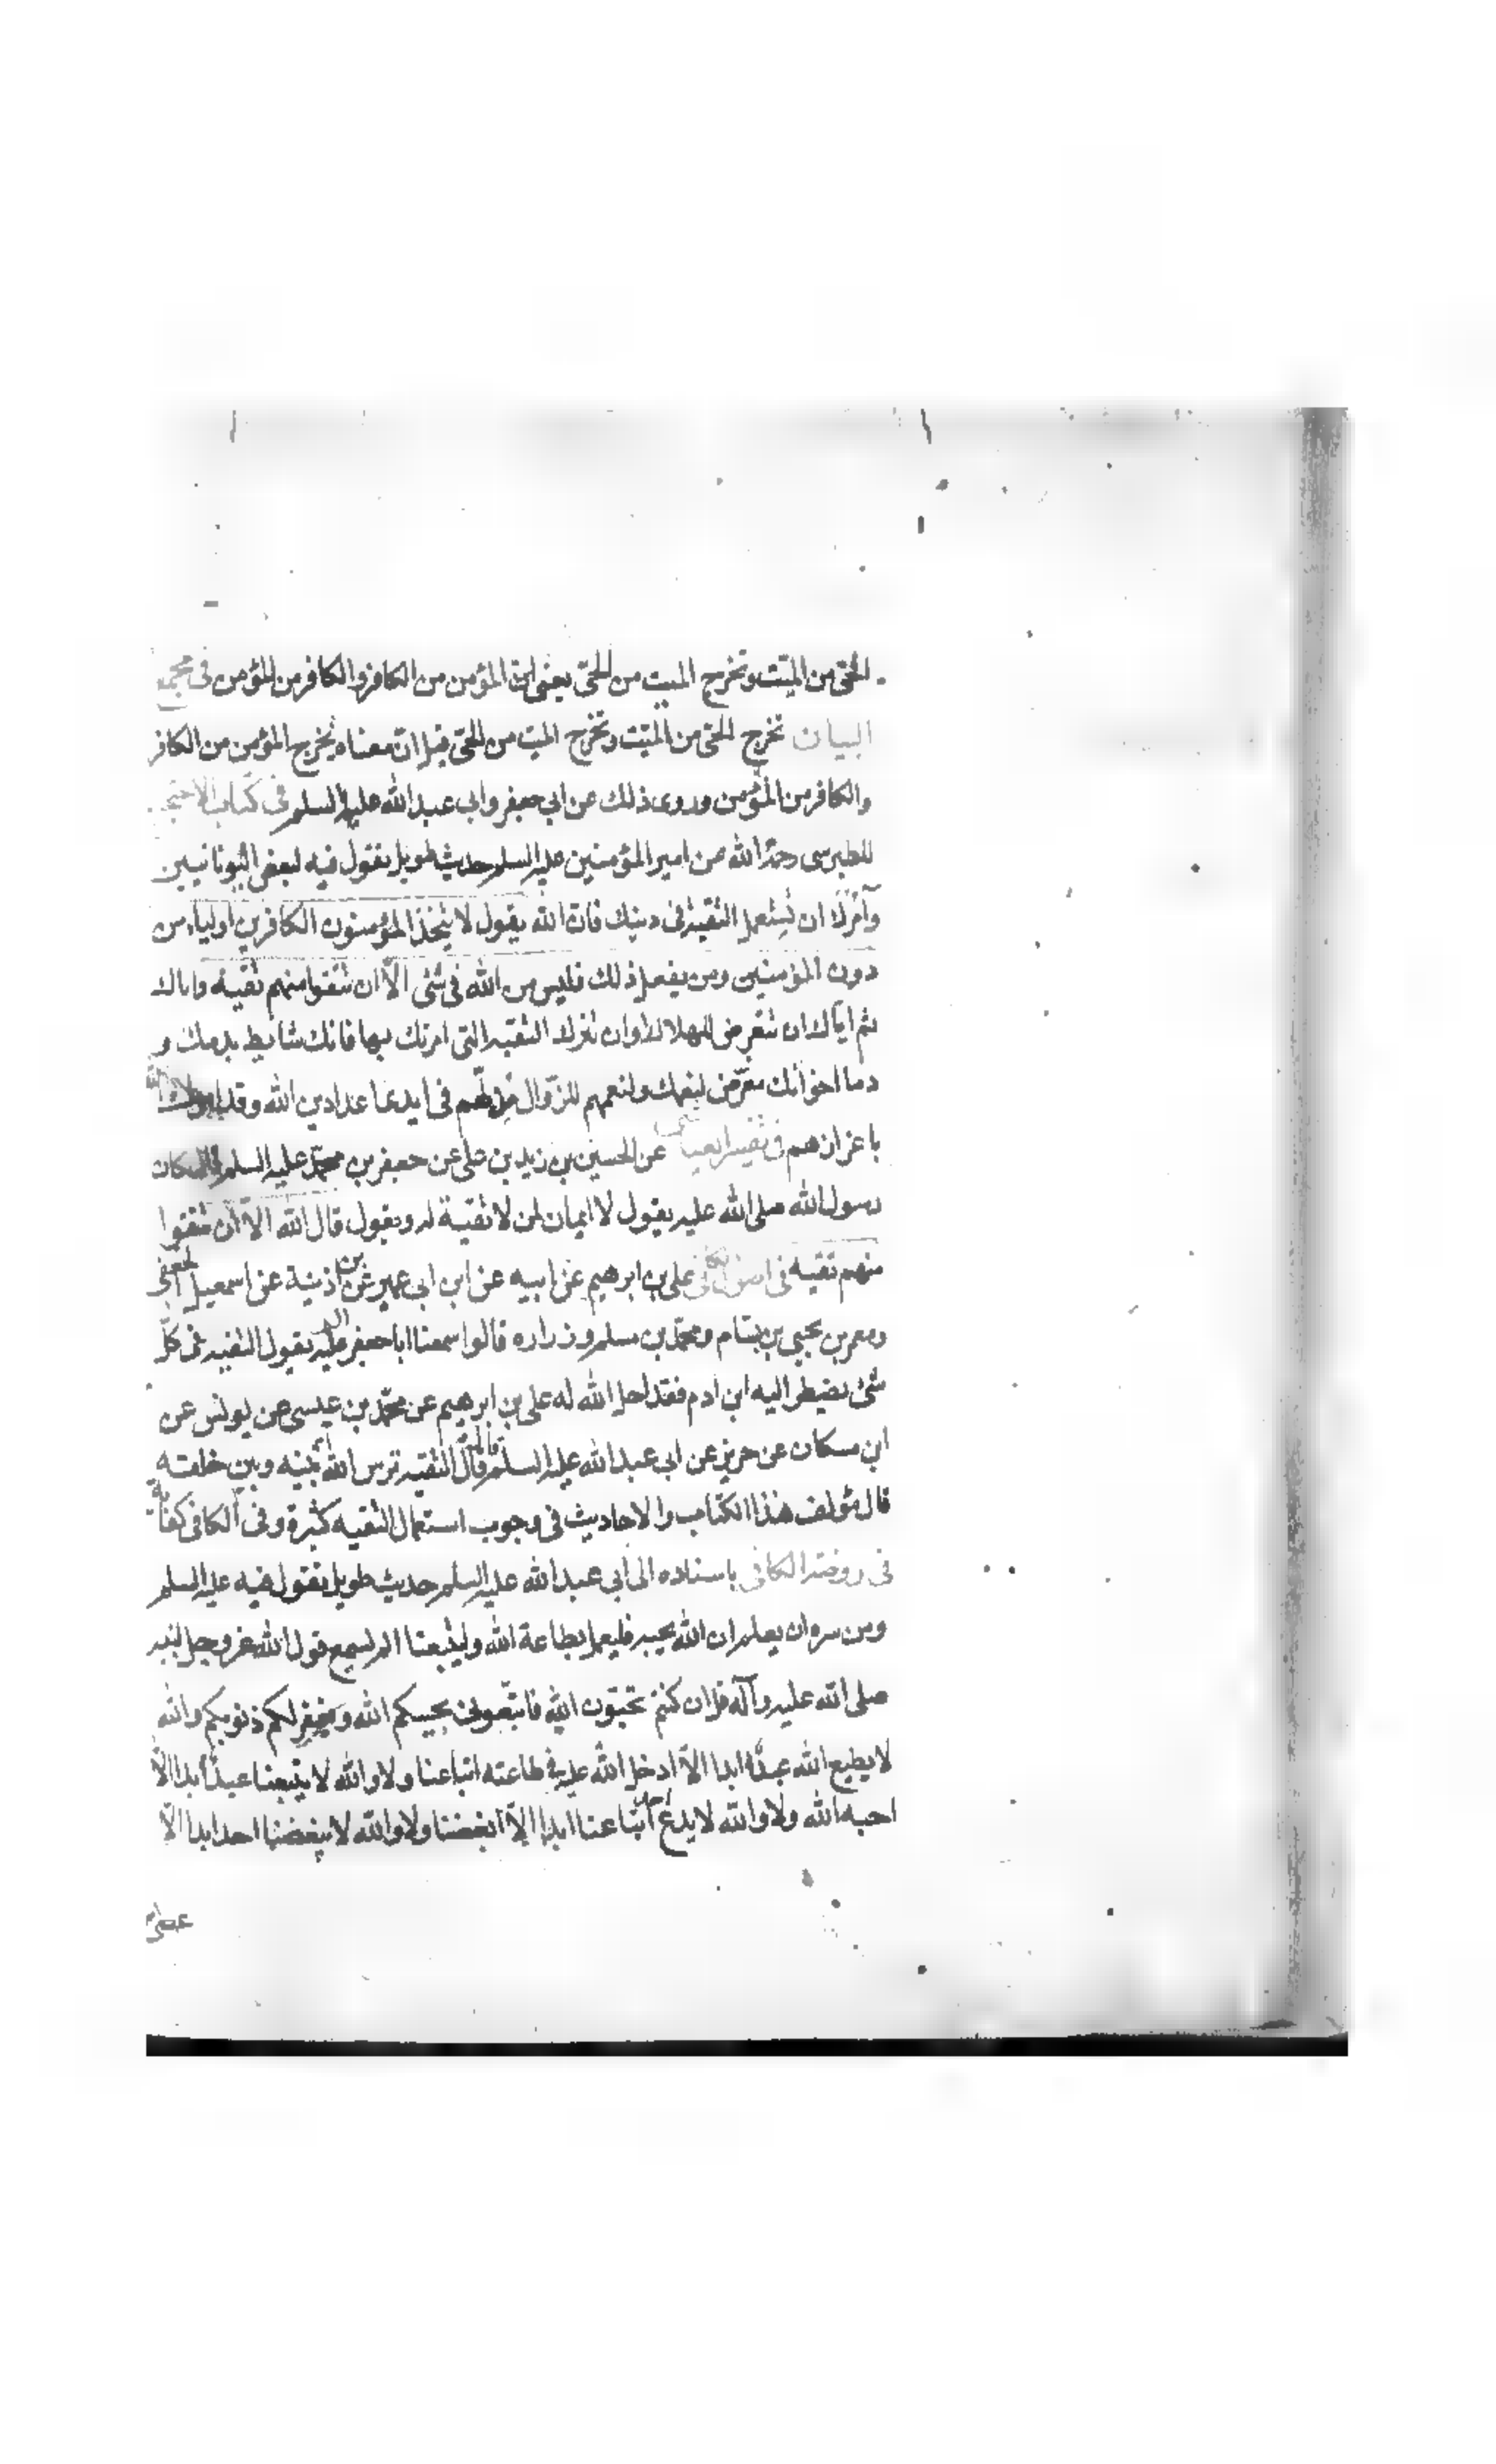 الحي من الميت وتخرج الميت من الحي يعني ان المؤمن من الكافر والكافر من المؤمن في مجمع
البيان تخرج الحي من الميت وتخرج الميت من الحي قيل ان معناه يخرج المؤمن من الكافر
والكافر من المؤمن وروى ذلك عن ابي جعفر وابي عبد الله عليهما السلم في كتاب الاحتجاج
للطبرسي رحمه الله عن امير المؤمنين عليه السلم حديث طويل يقول فيه لبعض اليونانيين
وآمرك ان تستعمل التقية في دينك فان الله يقول لا يتخذ المؤمنون الكافرين اولياء من
دون المؤمنين ومن يفعل ذلك فليس من الله في شئ الّا ان تتقوا منهم تقية واياك
ثم اياك ان تتعرض للهلاك وان تترك التقية التي امرتك بها فانك شائط بدمك و
دماء اخوانك معرّض لنعمك ولنعمهم للزّوال مذلّهم في ايدي اعداء دين الله وقد امرك الله
باعزازهم في تفسير العياشي عن الحسين بن زيد بن علي عن جعفر بن محمّد عليه السلم قال كان
رسول الله صلى الله عليه يقول لا ايمان لمن لا تقية له ويقول قال الله الّا أن تتقوا
منهم تقية في اصول الكافي علي بن ابرهيم عن ابيه عن ابن ابي عمير عن بن اذينة عن اسمعيل الجعفي
ومعمر بن يحيى بن بسّام ومحمّد بن مسلم وزراره قالوا سمعنا ابا جعفر عليه السلم يقول التقية في كلّ
شئ يضطر اليه ابن ادم فقد احل الله له علي بن ابرهيم عن محمّد بن عيسى عن يونس عن
ابن مسكان عن حريز عن ابي عبد الله عليه السلم قال التقية ترس الله بينه وبين خلقه
قال مؤلف هذا الكتاب والاحاديث في وجوب استعمال التقيه كثيرة وفي الكافي كفاية
في روضة الكافي باسناده الى ابي عبد الله عليه السلم حديث طويل يقول فيه عليه السلم
ومن سره ان يعلم ان الله يحبه فليعمل بطاعة الله وليتبعنا الم يسمع قول الله عز وجل لنبيه
صلى الله عليه وآله قل ان كنتم تحبّون الله فاتبعوني يحببكم الله ويغفر لكم ذنوبكم والله
لا يطيع الله عبدٌ ابدا الاّ ادخل الله عليه في طاعته اتباعنا ولا والله لا يتبعنا عبدٌ ابدا الاّ
احبه الله ولا والله لا يدع احد اتباعنا ابدا الاّ ابغضنا ولا والله لا يبغضنا احد ابدا الاّ
عصى